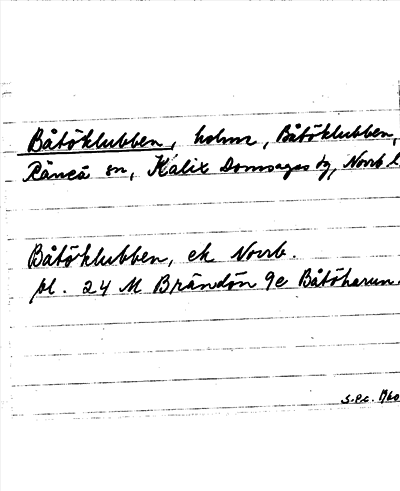 Båtöklubben, holme, Båtöklubben,
Råneå sn, Kalix Domsagas tg, Norrb l
Båtöklubben, ek Norrb.
bl. 24 M Brändön 9e Båtöharun.
S.P.c. 1960